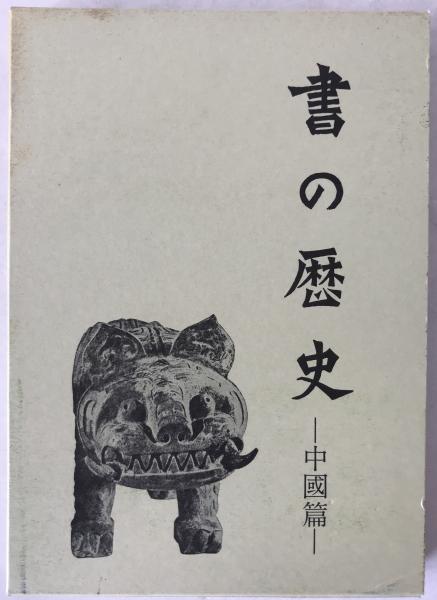 書の歴史
―中國篇―